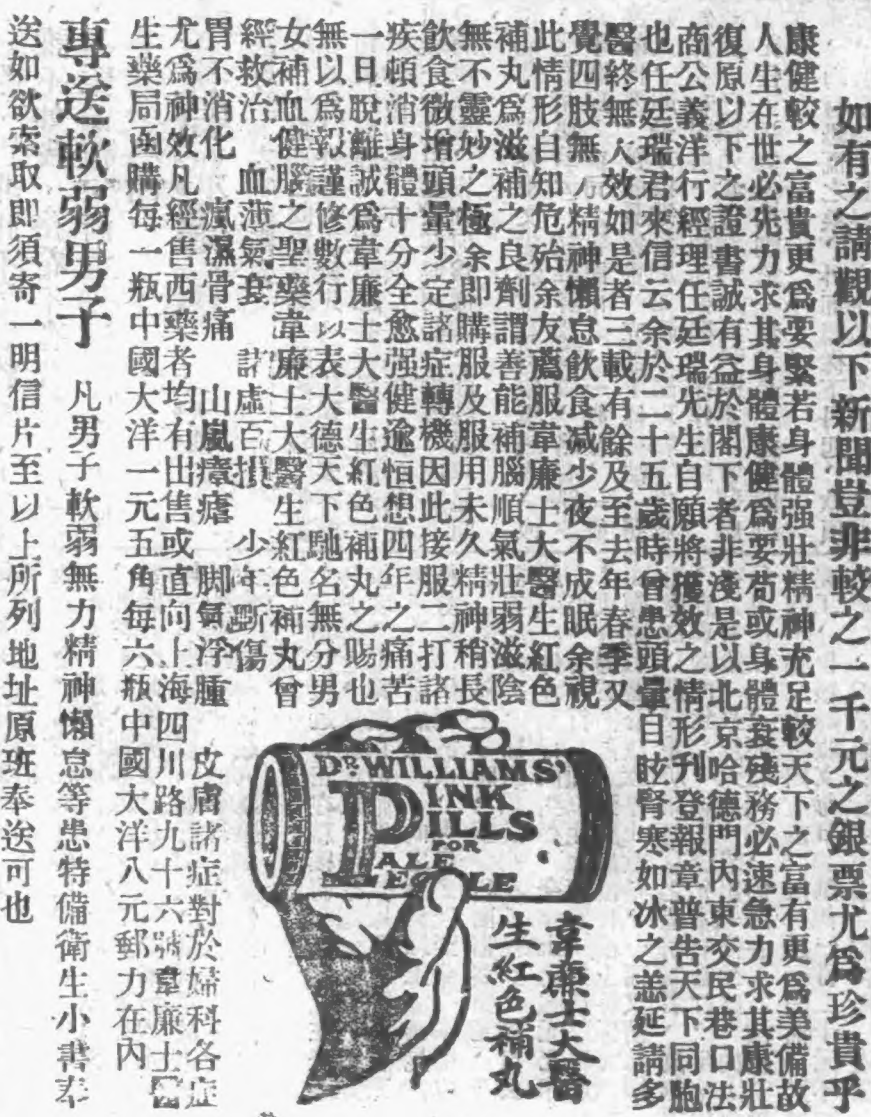 如有之請觀以下新聞豈非較之一千元之銀票尤爲珍貴乎
康健較之富貴更爲要緊若身體强壯精神充足較天下之富有更爲美備故
人生在世必先力求其身體康健爲要苟或身體衰殘務必速急力求其康壯
復原以下之證書誠有益於閣下者非淺是以北京哈德門內東交民巷口法
商公義洋行經理任廷瑞先生自願將獲效之情形刋登報章普告天下同胞
也任廷瑞君來信云余於二十五歲時曾患頭暈目眩腎寒如冰之恙延請多
醫終無大效如是者三載有餘及至去年春季又
覺四肢無力精神懶怠飲食減少夜不成眠余視
此情形自知危殆余友薦服韋廉士大醫生紅色
補丸爲滋補之良劑謂善能補腦順氣壯弱滋陰
無不靈妙之極余即購服及服用未久精神稍長
飲食微增頭暈少定諸症轉機因此接服二打諸
疾頓消身體十分全愈强健逾恒想四年之痛苦
一日脫離誠爲韋廉士大醫生紅色補丸之賜也
無以爲報謹修數行以表大德天下馳名無分男
女補血健腦之聖藥韋廉士大醫生紅色補丸曾
經救治 血薄氣衰 諸虛百損 少年斷傷
胃不消化 瘋濕骨痛 山嵐瘴瘧 脚氣浮腫 皮膚諸症對於婦科各症
尤爲神效凡經售西藥者均有出售或直向上海四川路九十六號韋廉士醫
生藥局函購每一瓶中國大洋一元五角每六瓶中國大洋八元郵力在內
專送軟弱男子 凡男子軟弱無力精神懶怠等患特備衛生小書奉
送如欲索取即須寄一明信片至以上所列地址原班奉送可也
DR. WILLIAMS'
PINK
PILLS
FOR
PALE
PEOPLE
韋廉士大醫
生紅色補丸